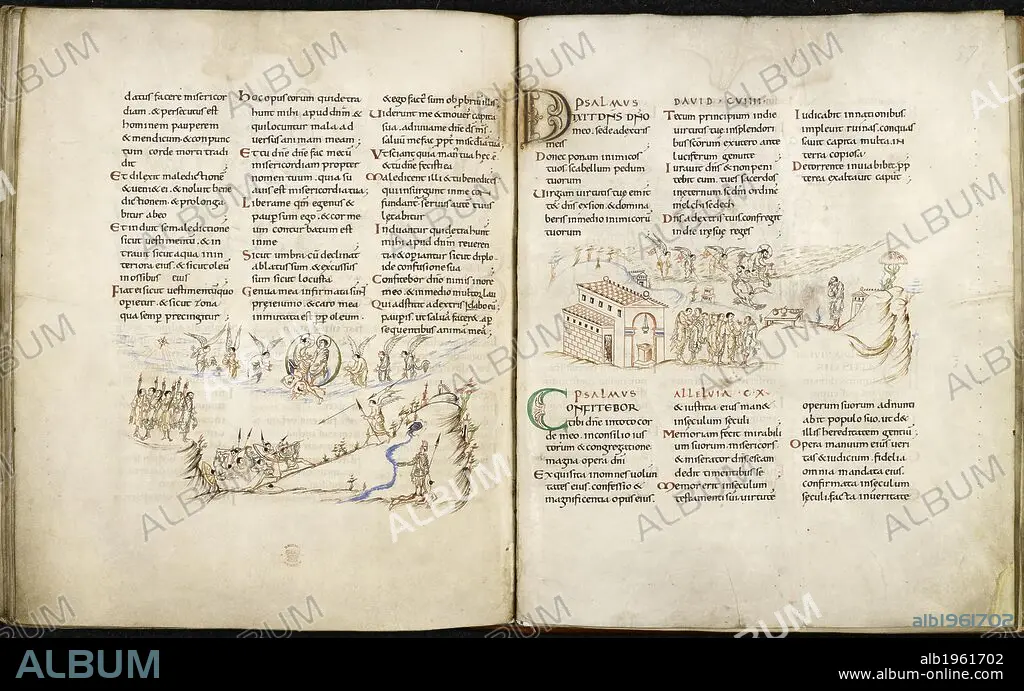 datus facere misericor
diam. & persecutus est
hominem pauperem
& mendicum & conpunc
tum corde morti tradi
dit
Et dilexit maledictionē
& ueni& ei. & noluit bene
dictionem & prolonga
bitur abeo
Et induit se maledictione
sicut uestimentū. & in
trauit sicut aqua inin
teriora eius. & sicut oleū
inossibus eius
Fiat ei sicut uestimentū quo
operi&ur. & sicut zona
qua semp precingitur
Hoc opus eorum qui detra
hunt mihi apud dnm &
qui locuntur mala ad
uersus animam meam
Et tu dne dne fac mecū
misericordiam propter
nomen tuum. quia su
auis est misericordia tua
Libera me qm egenus &
paup sum ego. & cor me
um conturbatum est
inme
Sicut umbra cū declinat
ablatus sum. & excussus
sum sicut locusta
Genua mea infirmata sunt
pre ieiunio. & caro mea
inmutata est pp oleum
& ego fact' sum obpbriū illis
Uiderunt me & mouer capita
sua. adiuua me ds ms
saluū me fac pp miscdiā tuā
Ut sciant quia man' tua hec ē
& tu dne fecisti eā
Maledicent illi & tu benedices
qui insurgunt inme con
fundant seruus aute tuus
l&abitur
Induantur qui detrahunt
mihi pudore
& operiantur sicut diplo
ide confusione sua
Confitebor dno nimis inore
meo. & inmedio multor lau
Qui adstitit adextris
paupis. ut salua facer& a p
sequentibus animā meā
PSALMUS DAVID · CVIIII ·
DIXIT DNS DNO
meo. sede adextris
meis
Donec ponam inimicos
tuos. scabellum pedum
tuorum
Uirgam uirtutis tuę emit
t& dns exsion. & domina
beris inmedio inimicorū
tuorum
Tecum principium indie
uirtutis tuę. insplendori
bus scorum exutero ante
luciferum genui te
Iurauit dns & non peni
tebit eum. tu es sacerdos
inęternum. scdm ordine
melchisedech
Dns adextris tuis confregit
indie irę suę reges
Iudicabit innationibus.
impleuit ruinas. conquas
sauit capita multa. in
terra copiosa
Detorrente inuia bib& pp
terea exaltauit caput
PSALMUS ALLELVIA · C · X ·
CONFITEBOR
tibi dne intoto cor
de meo. inconsilio ius
torum & congregatione
magna opera dni
Exquisita inomnes uolun
tates eius. confessio &
magnificentia opus eius.
& iustitia eius man&
inseculum seculi
Memoriam fecit mirabili
um suorum. misericors
& miserator dns. escam
dedit timentibus se
Memor erit inseculum
testamenti sui. uirtutē
operum suorum adnunti
abit populo suo. ut d&
illis hereditatem gentiū
Opera manuum eius ueri
tas & iudicium. fidelia
omnia mandata eius.
confirmata inseculum
seculi. facta inueritate
ALBUM
alb1961702
alb1961702
www.album-online.com